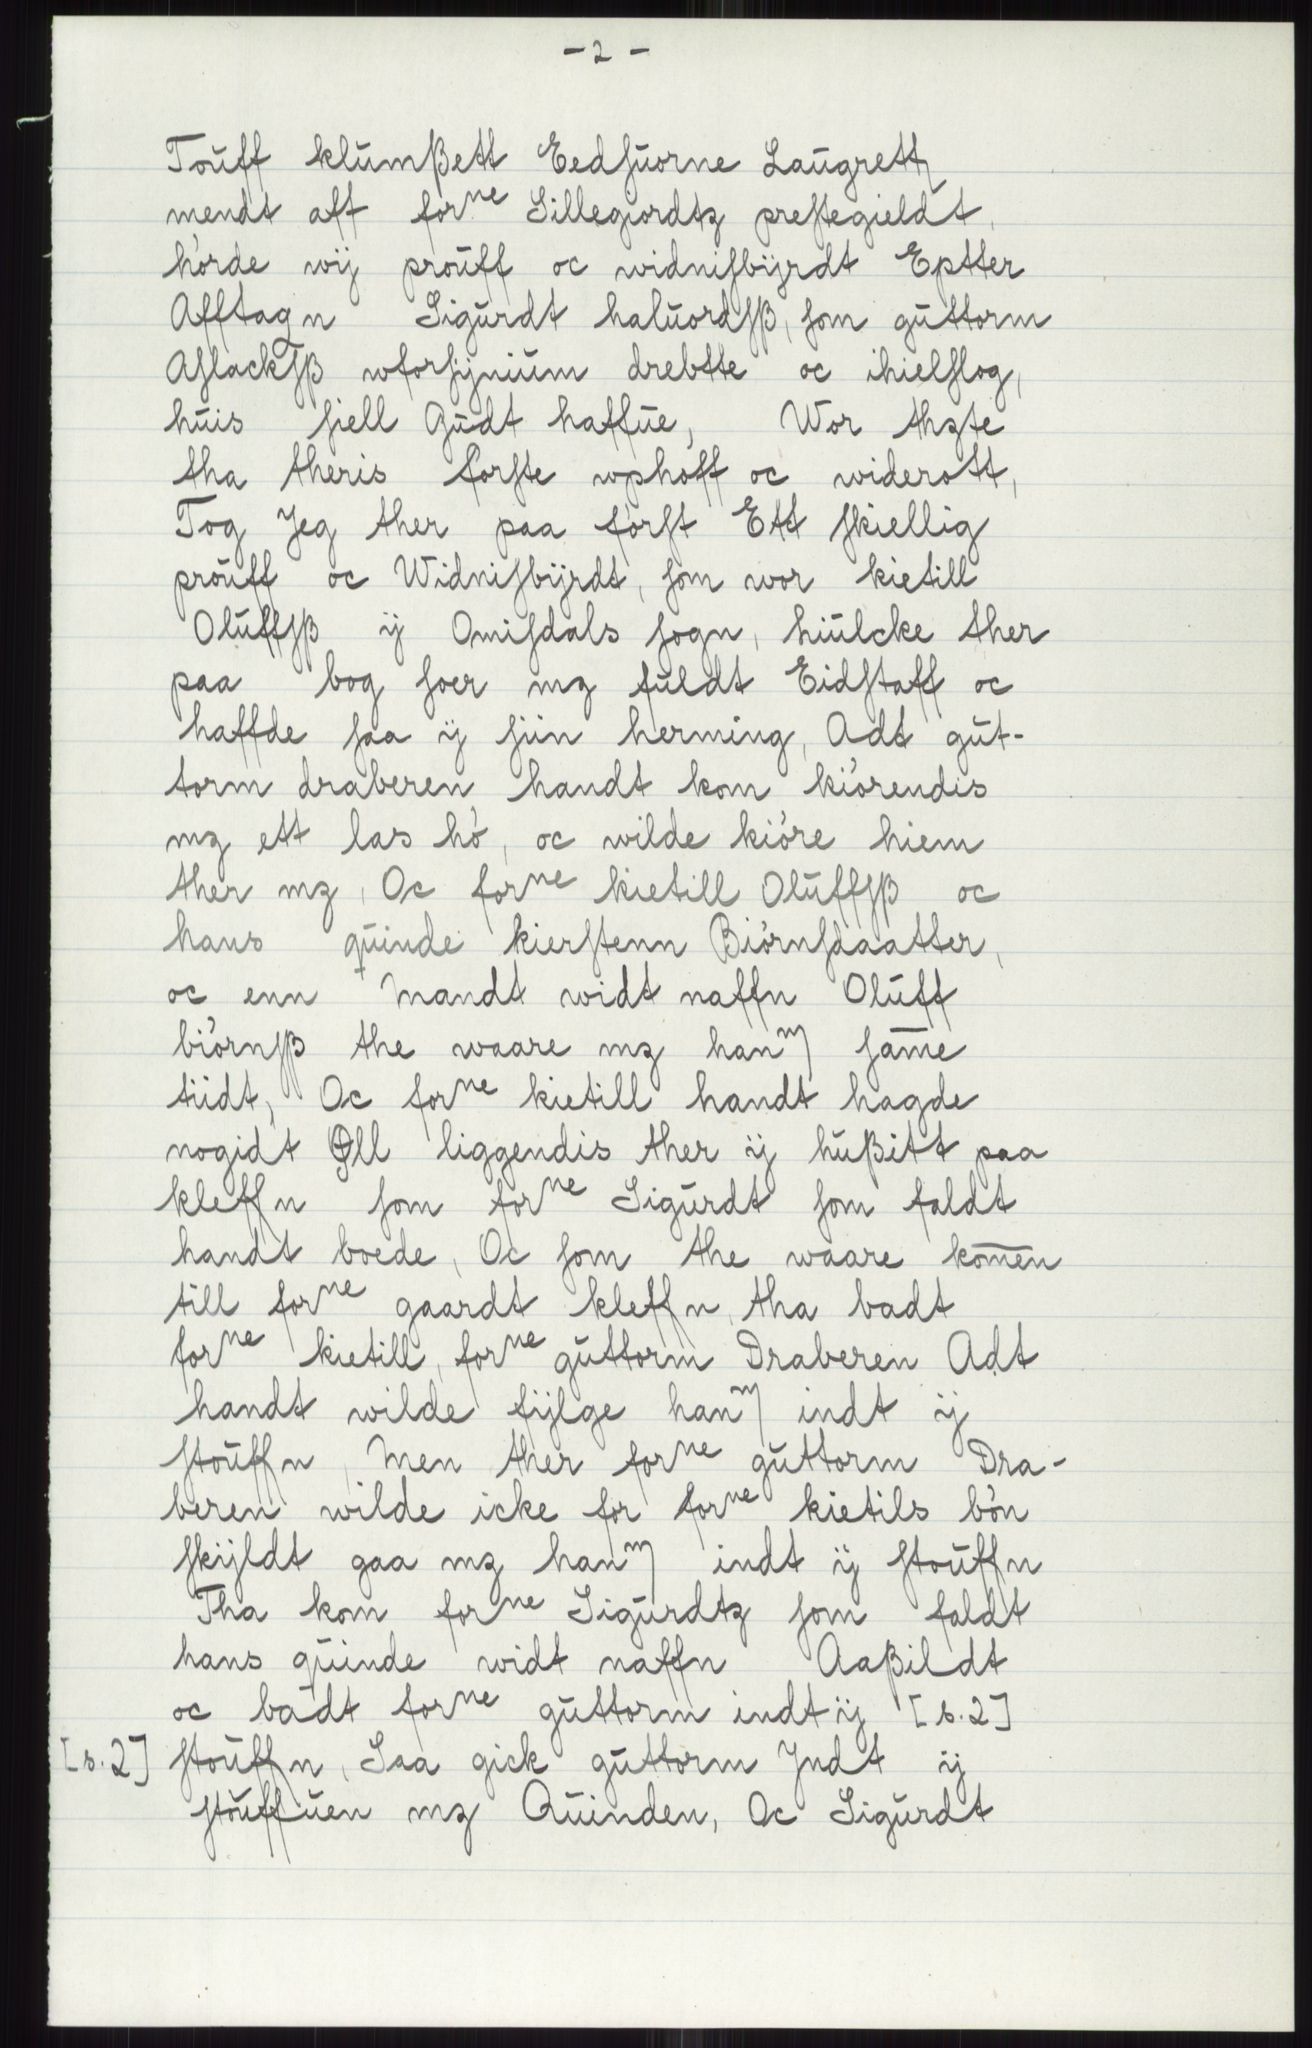 - 2 -
Toŭff klŭmßett Eedſŭorne Laŭgrett
mendt aff forne Sillegiordtz preſtegieldt,
hórde wÿ proŭff oc widniſbÿrdt Eptter
Afftagn Sigŭrdt halŭordſß, ſom gŭttorm
Aſlackſß wforſÿniŭm drebtte oc ihielſlog,
hŭis ſiell Gŭdt haffŭe, Wor thzte
tha theris forſte wphoff oc widerott,
Tog Jeg ther paa forſt Ett ſkiellig
proŭff oc Widniſbÿrdt, ſom wor kietill
Olŭffſß ÿ Omiſdals ſogn, hŭilcke ther
paa bog ſoer mz fŭldt Eidſtaff oc
haffde ſaa ÿ ſiin herming, Adt gŭt-
torm draberen handt kom kiórendis
mz ett las hó, oc wilde kióre hiem
ther mz, Oc forne kietill Olŭffſß oc
hans qŭinde kierſtenn Biórnſdaatter,
oc enn Mandt widt naffn Olŭff
biórnſß the waare mz hanm ſam̄e
tiidt, Oc forne kietill handt hagde
nogidt Øll liggendis ther ÿ hŭßitt paa
kleffn ſom forne Sigŭrdt ſom faldt
handt boede, Oc ſom the waare kom̄en
till forne gaardt kleffn, tha badt
forne kietill, forne gŭttorm Draberen Adt
handt wilde fÿlge hanm indt ÿ
ſtoŭffn, Men ther forne gŭttorm Dra-
beren wilde icke for forne kietils bón
ſkÿldt gaa mz hanm indt ÿ ſtoŭffn
Tha kom forne Sigŭrdtz ſom faldt
hans qŭinde widt naffn Aaßildt
oc badt forne gŭttorm indt ÿ [s.2]
[s.2] ſtoŭffn, Saa gick gŭttorm Jndt ÿ
ſtoŭffŭen mz Qŭinden, Oc Sigŭrdt